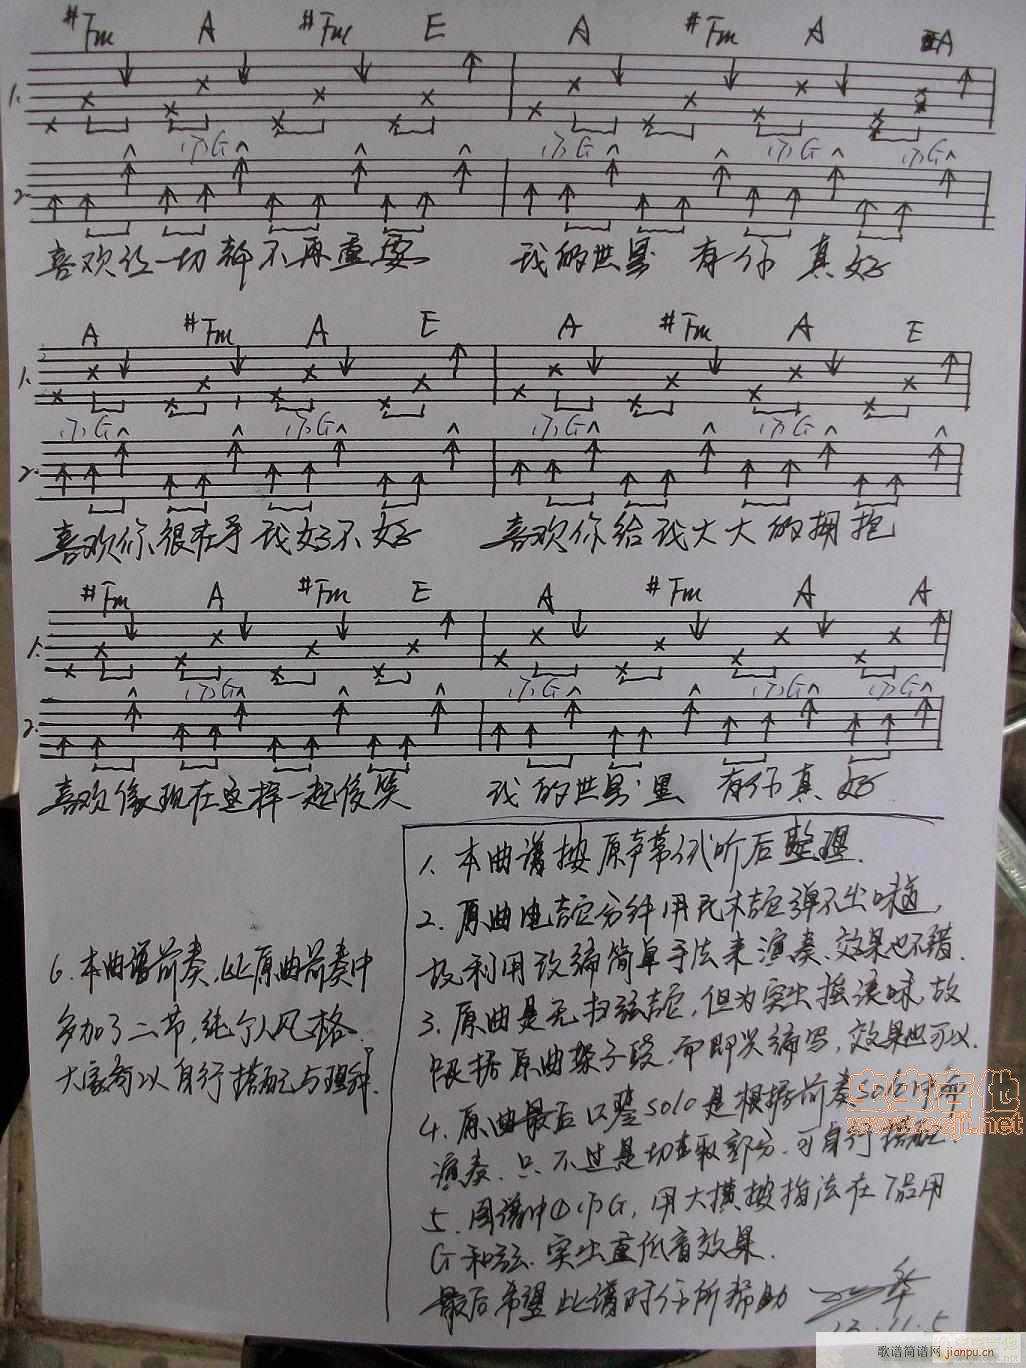 #Fm A #Fm E A #Fm A A
1.
(7)G (7)G (7)G (7)G
2.
喜欢让一切都不再重要 我的世界 有你 真 好
A #Fm A E A #Fm A E
1.
(7)G (7)G (7)G (7)G
2.
喜欢你很在乎我好不好 喜欢你给我大大的拥抱
#Fm A #Fm E A #Fm A A
1.
(7)G (7)G (7)G (7)G
2.
喜欢像现在这样一起傻笑 我的世界里 有你真 好
1. 本曲谱按原声带试听后整理.
2. 原曲电吉它分解用民木吉它弹不出味道,
故利用改编简单手法来演奏.效果也不错.
3. 原曲是无扫弦吉它,但为突出摇滚味,故
根据原曲架子鼓.而即兴编写,效果也可以.
4. 原曲最后口琴solo是根据前奏solo
演奏.只不过是切取部分.可自行搭配.
5. 图谱中(7)G,用大横按指法在7品用
G和弦.突出重低音效果.
最后希望此谱对你所帮助
华
13.11.5
6. 本曲谱前奏,比原曲前奏中
多加了二节,纯个人风格.
大家可以自行搭配与理解.
www.ccjt.net
歌谱简谱网
jianpu.cn